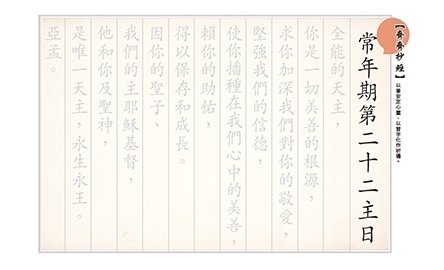 【齊齊抄經】
以筆安定心靈，以習字化作祈禱。
常年期第二十二主日
全能的天主，
你是一切美善的根源，
求你加深我們對你的敬愛，
堅強我們的信德，
使你播種在我們心中的美善，
賴你的助佑，
得以保存和成長。
因你的聖子、
我們的主耶穌基督，
他和你及聖神，
是唯一天主，永生永王。
亞孟。